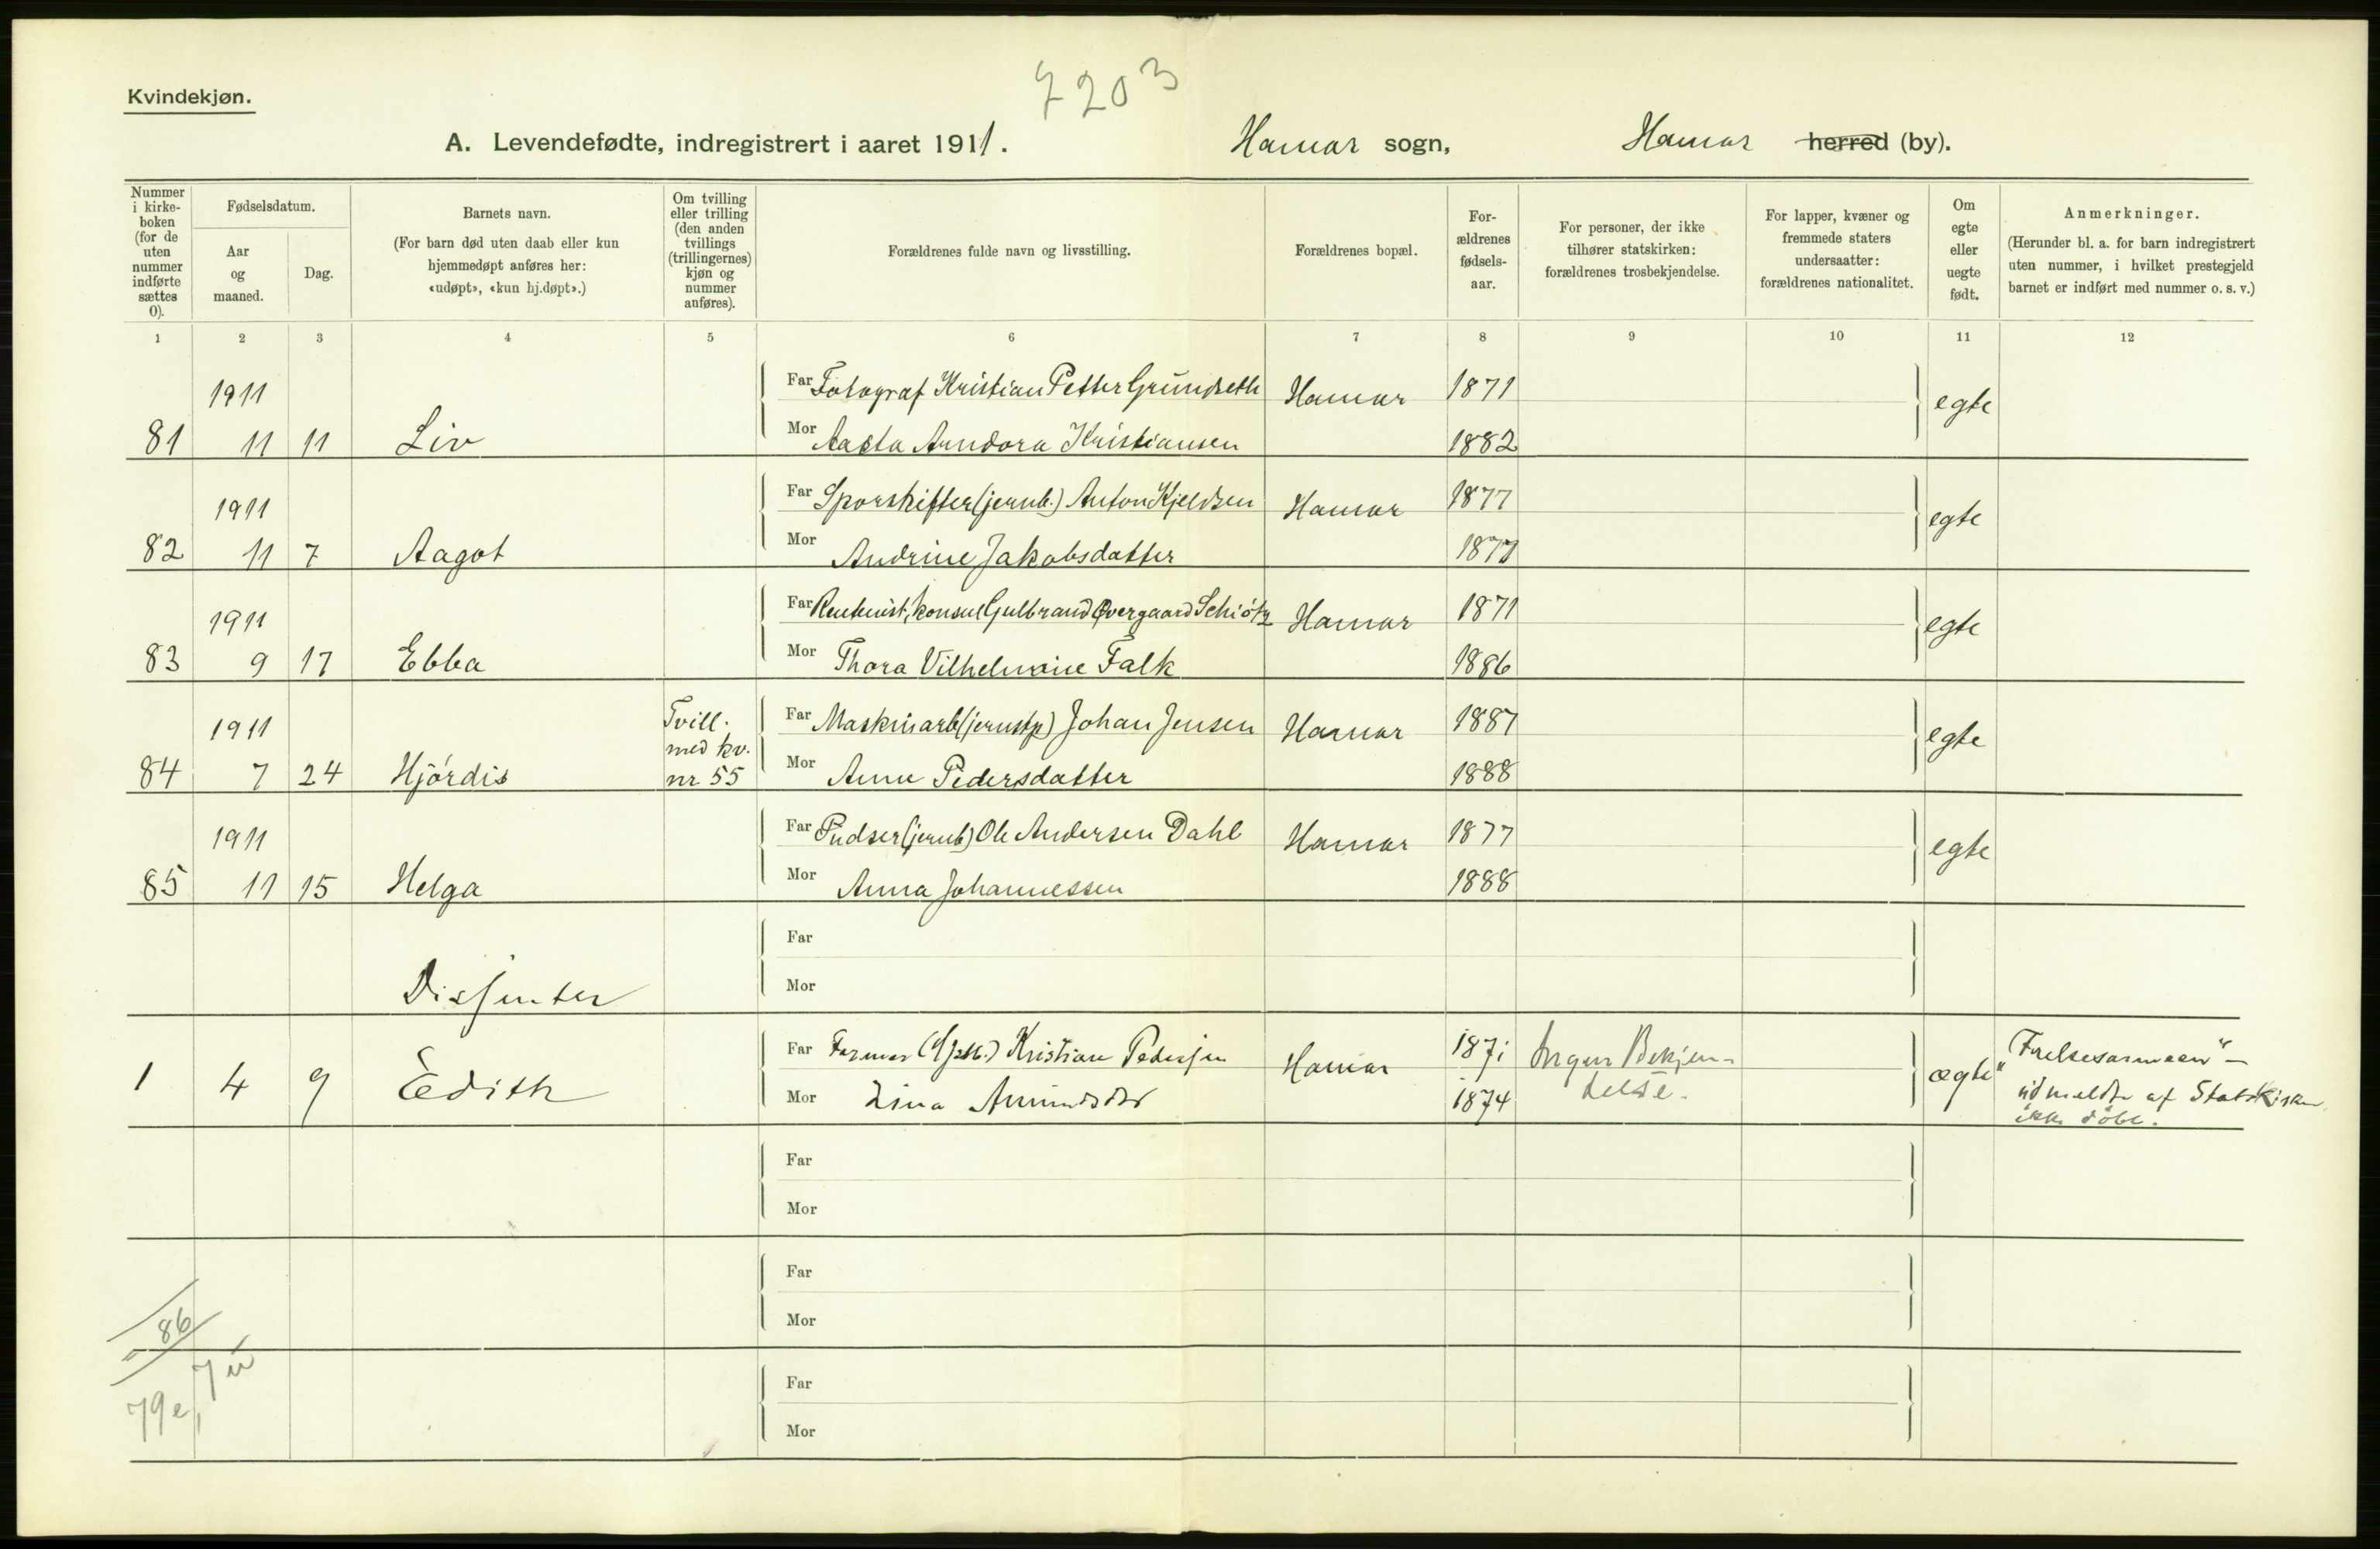 7203
Kvindekjøn.
A. Levendefødte, indregistrert i aaret 1911.
Hamar sogn,
Hamar herred (by).
Nummer
i kirke-
boken
(for de
uten
nummer
indførte
sættes
0).
Fødselsdatum.
Aar
og
maaned.
Dag.
Barnets navn.
(For barn død uten daab eller kun
hjemmedøpt anføres her:
«udøpt», «kun hj.døpt».)
Om tvilling
eller trilling
(den anden
tvillings
(trillingernes)
kjøn og
nummer
anføres).
Forældrenes fulde navn og livsstilling.
Forældrenes bopæl.
For-
ældrenes
fødsels-
aar.
For personer, der ikke
tilhører statskirken:
forældrenes trosbekjendelse.
For lapper, kvæner og
fremmede staters
undersaatter:
forældrenes nationalitet.
Om
egte
eller
uegte
født.
Anmerkninger.
(Herunder bl. a. for barn indregistrert
uten nummer, i hvilket prestegjeld
barnet er indført med nummer o. s. v.)
1 2 3 4 5 6 7 8 9 10 11 12
1911
Far Fotograf Kristian Petter Grundseth Hamar 1871 egte
81 11 11 Liv
Mor Aasta Arndora Kristiansen 1882
1911
Far Sporskifter (jernb.) Anton Kjeldsen Hamar 1877 egte
82 11 7 Aagot
Mor Andrine Jakobsdatter 1877
1911
Far Rentenist, konsul Gulbrand Øvergaard Schiøtz Hamar 1871 egte
83 9 17 Ebba
Mor Thora Vilhelmine Falk 1886
1911
Tvill.
med kv.
nr 55
Far Maskinarb (jernstøp) Johan Jensen Hamar 1887 egte
84 7 24 Hjørdis
Mor Anne Pedersdatter 1888
1911
Far Pudser (jernb) Ole Andersen Dahl Hamar 1877 egte
85 11 15 Helga
Mor Anna Johannessen 1888
Far
Dissenter
Mor
Far Former Kristian Pedersen Hamar 1871 Ingen Bekjen-
delse.
1 4 9 Edith
Mor Lina 1874
ægte
"Frelsesarmeen" -
udmeldt af Statskirken
ikke døbt.
Far
Mor
Far
Mor
86
7 u
79 e,
Far
Mor